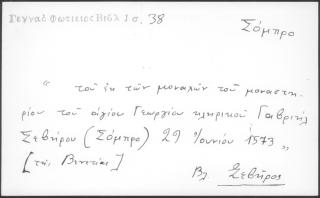 Γενναδ Φωτιειος Βιβλ 1 σ. 38
Σόμπρο
" τοῦ ἐκ τῶν μοναχῶν τοῦ μοναστη-
ρίου τοῦ ἁγίου Γεωργίου κληρικοῦ Γαβριήλ
Σεβήρου (Σόμπρο) 29 Ἰουνίου 1573 "
[τῆς Βενετίας]
Βλ Σεβῆρος